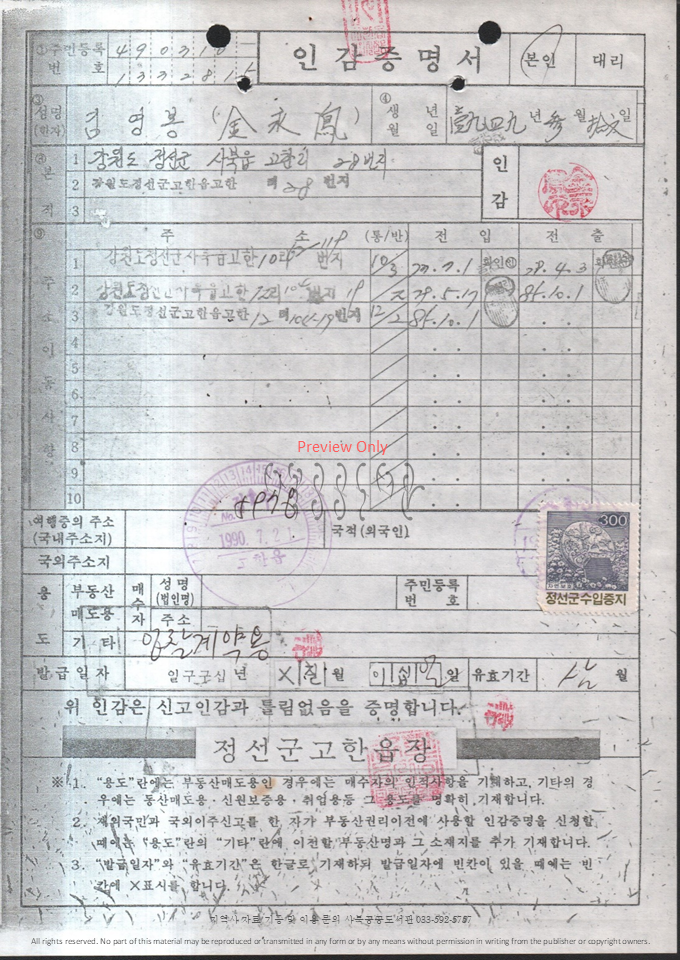 ① 주민등록 번 호 490310- 133281
인감증명서
본인 대리
③ 성명 (한자) 김영봉 (金永鳳)
④ 생년월일 壹九四九 년 월 일
본 적
1 강원도 정선군 사북읍 고한리 28번지
2 강원도정선군고한읍고한 리 28 번지
3
인 감
주 소 (통/반) 전 입 전 출
주 소 이 동 사 항
1 강원도정선군사북읍고한10리 번지 10/3 77. 7. 1 확인 79. 4. 3
2 강원도정선군사북읍고한12리 번지 79. 5. 17 85. 10. 1
3 강원도정선군고한읍고한12 리 104-19번지 12/2 85. 10. 1
4
5
6
7
8
9
10
Preview Only
여행중의 주소
(국내주소지)
국적(외국인)
1990. 7. 2
고한읍
국외주소지
300
정선군수입증지
용 도
부동산 매도용
매수자
성명 (법인명)
주민등록 번 호
주소
기 타 입찰계약용
발급일자 일구구십 년 X 칠 월 이십 일 유효기간 삼 월
위 인감은 신고인감과 틀림없음을 증명합니다.
정선군고한읍장
※ 1. “용도”란에는 부동산매도용인 경우에는 매수자의 인적사항을 기재하고, 기타의 경
우에는 동산매도용·신원보증용·취업용등 그 용도를 명확히 기재합니다.
2. 재외국민과 국외이주신고를 한 자가 부동산권리이전에 사용할 인감증명을 신청할
때에는 “용도”란의 “기타”란에 이전할 부동산명과 그 소재지를 추가 기재합니다.
3. “발급일자”와 “유효기간”은 한글로 기재하되 발급일자에 빈칸이 있을 때에는 빈
칸에 X표시를 합니다.
사북공공도서관 033-592-5757
All rights reserved. No part of this material may be reproduced or transmitted in any form or by any means without permission in writing from the publisher or copyright owners.